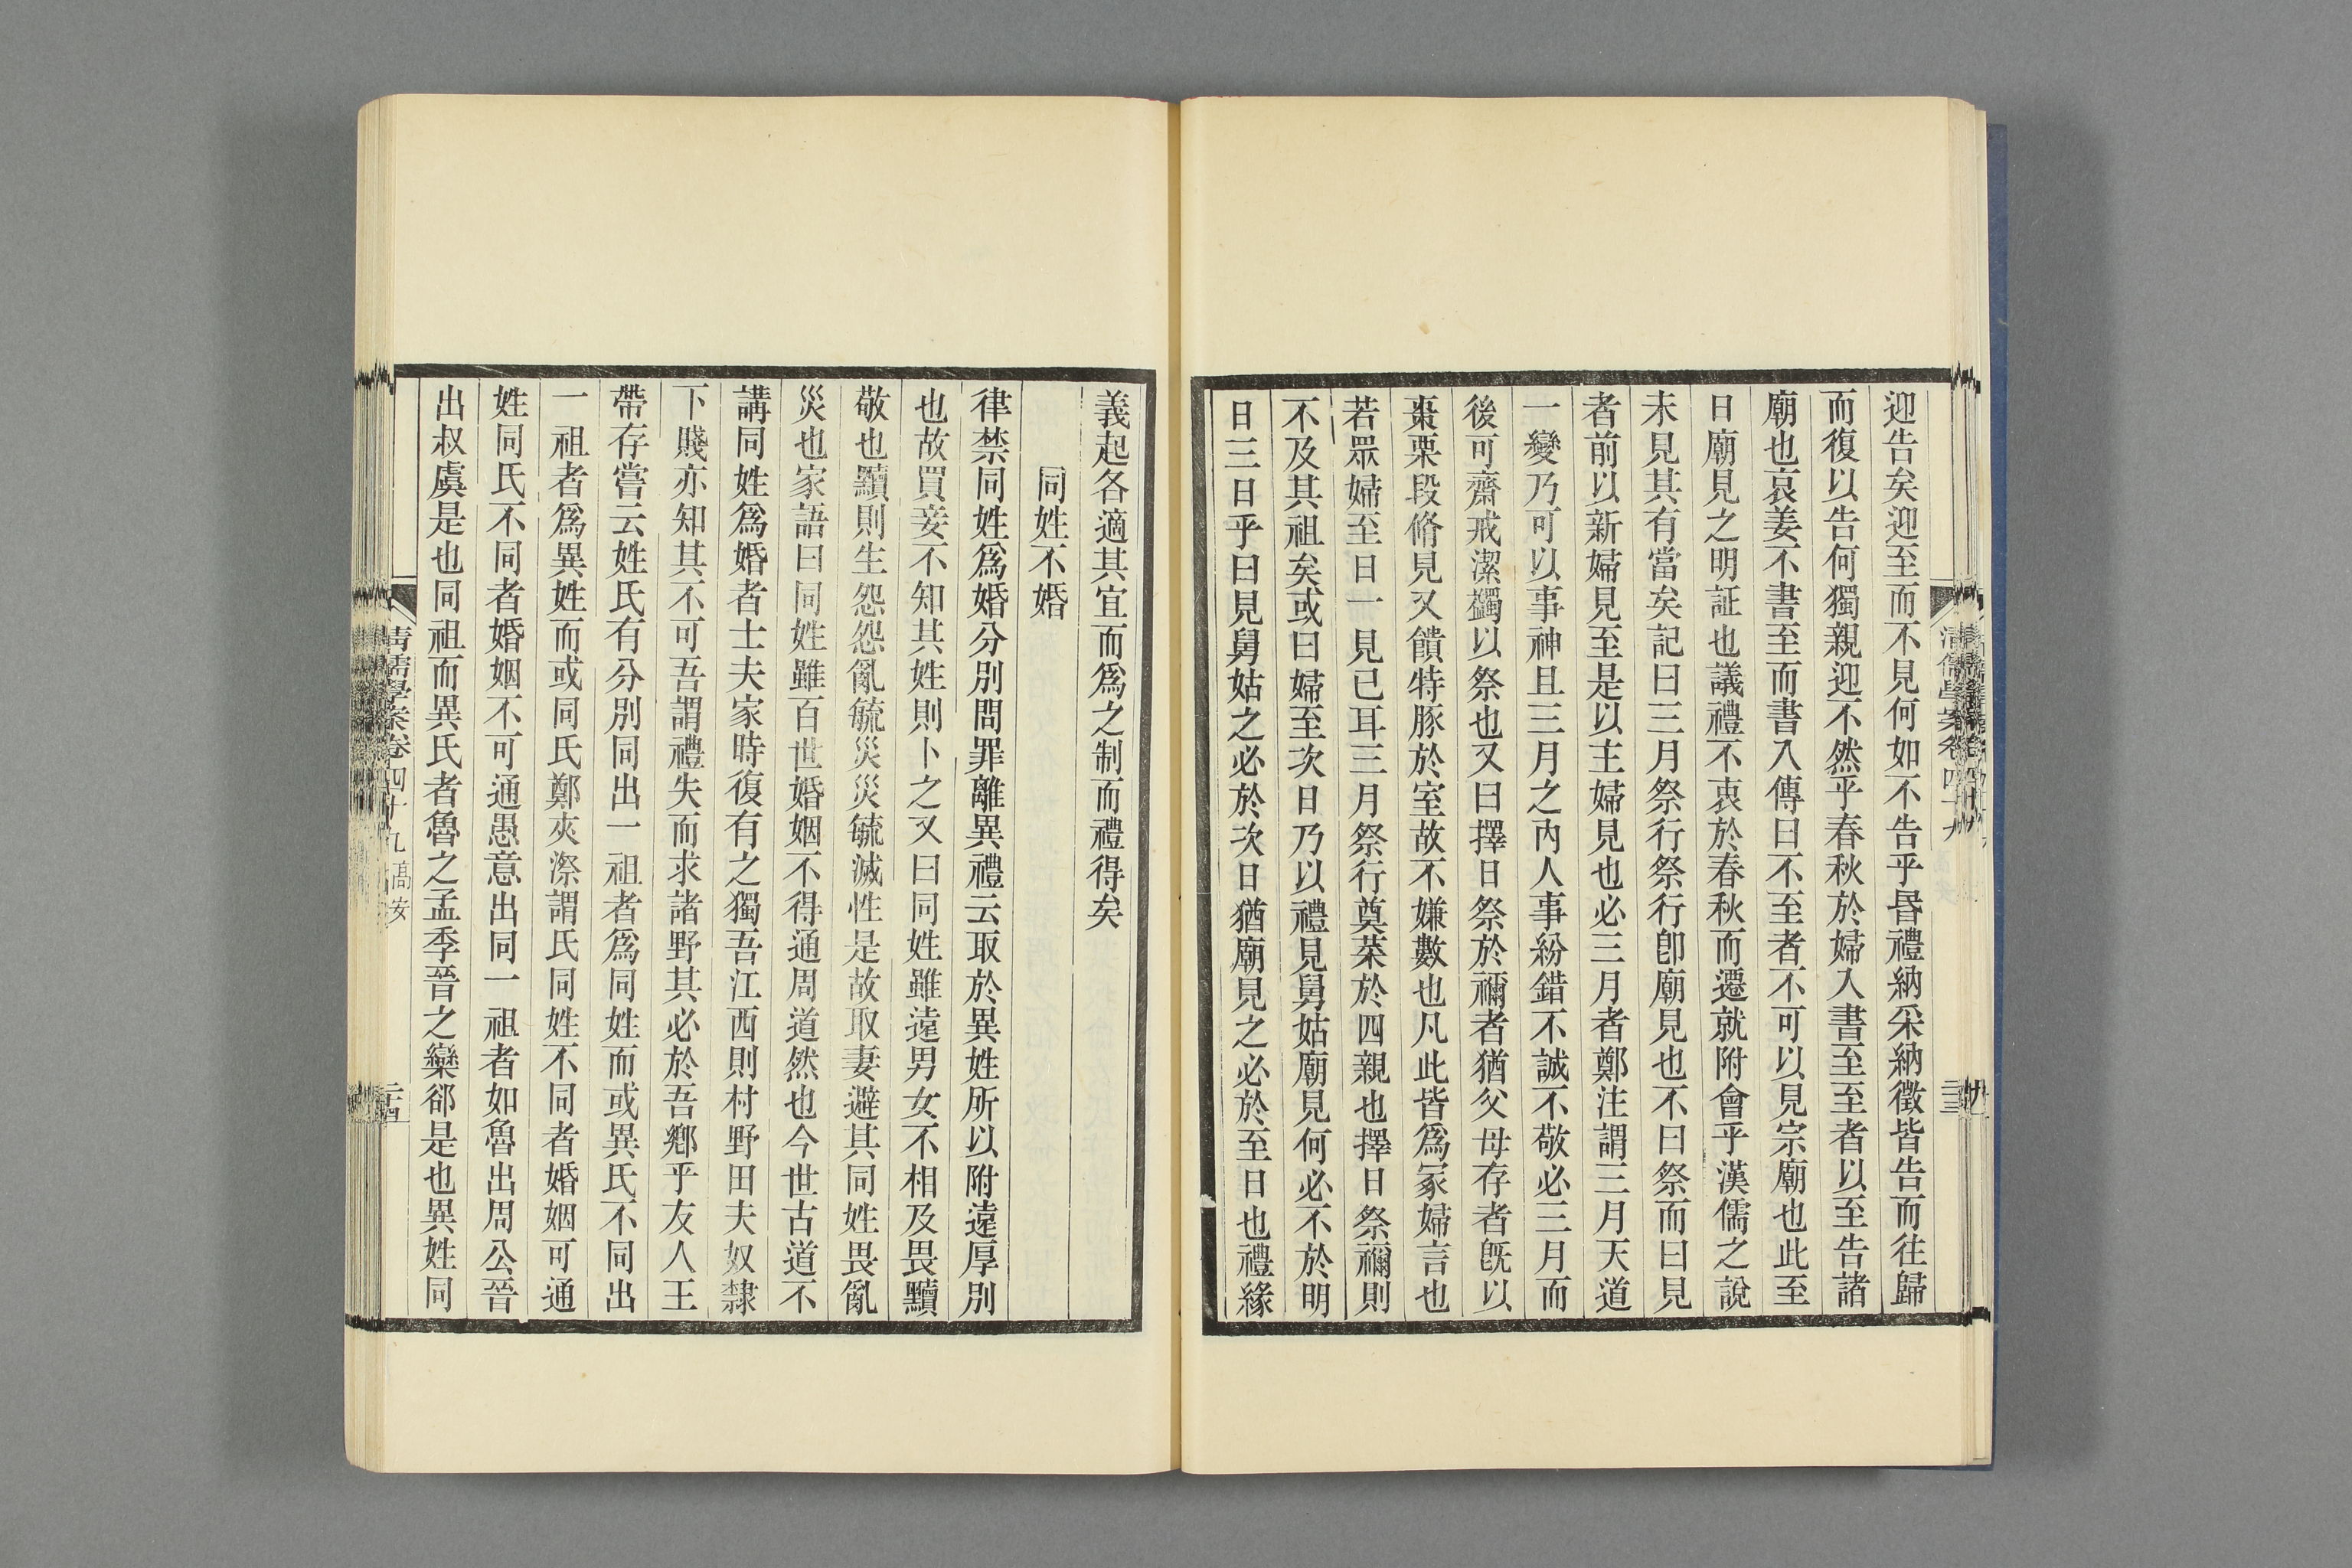 迎告矣迎至而不見何如不告乎昏禮納采納徵皆告而往歸
而復以告何獨親迎不然乎春秋於婦入書至至者以至告諸
廟也哀姜不書至而書入傳曰不至者不可以見宗廟也此至
日廟見之明証也議禮不衷於春秋而遷就附會乎漢儒之說
未見其有當矣記曰三月祭行祭行卽廟見也不曰祭而曰見
者前以新婦見至是以主婦見也必三月者鄭注謂三月天道
一變乃可以事神且三月之內人事紛錯不誠不敬必三月而
後可齋戒潔蠲以祭也又曰擇日祭於禰者猶父母存者旣以
棗栗段脩見又饋特豚於室故不嫌數也凡此皆爲冢婦言也
若眾婦至日一見已耳三月祭行奠菜於四親也擇日祭禰則
不及其祖矣或曰婦至次日乃以禮見舅姑廟見何必不於明
日三日乎曰見舅姑之必於次日猶廟見之必於至日也禮緣
清儒學案卷四十九
二十三
義起各適其宜而爲之制而禮得矣
同姓不婚
律禁同姓爲婚分別問罪離異禮云取於異姓所以附遠厚別
也故買妾不知其姓則卜之又曰同姓雖遠男女不相及畏黷
敬也黷則生怨怨亂毓災災毓滅性是故取妻避其同姓畏亂
災也家語曰同姓雖百世婚姻不得通周道然也今世古道不
講同姓爲婚者士夫家時復有之獨吾江西則村野田夫奴隸
下賤亦知其不可吾謂禮失而求諸野其必於吾鄉乎友人王
帶存嘗云姓氏有分別同出一祖者爲同姓而或異氏不同出
一祖者爲異姓而或同氏鄭夾漈謂氏同姓不同者婚姻可通
姓同氏不同者婚姻不可通愚意出同一祖者如魯出周公晉
出叔虞是也同祖而異氏者魯之孟季晉之欒郤是也異姓同
清儒學案卷四十九 高安
二十四